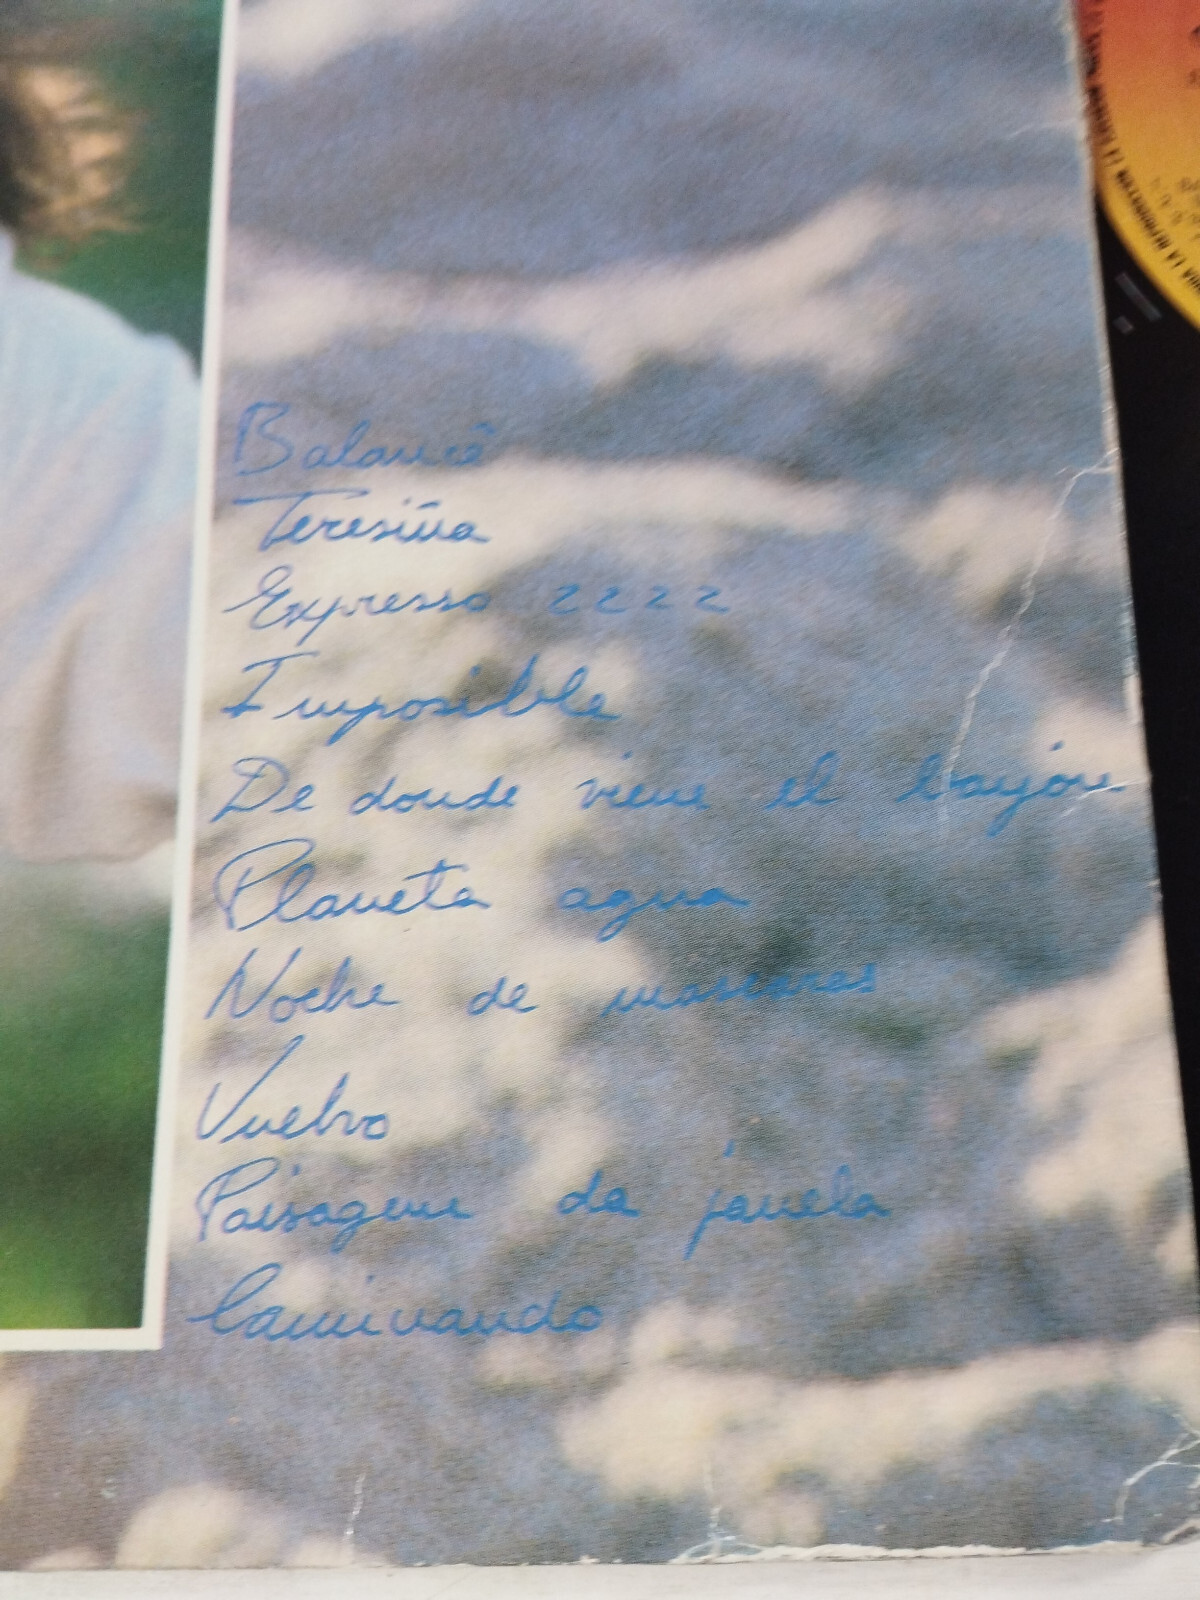 Balancê
Teresiña
Expresso 2222
Imposible
De donde viene el bayón
Planeta agua
Noche de mascaras
Vuelvo
Paisagem da janela
Caminando